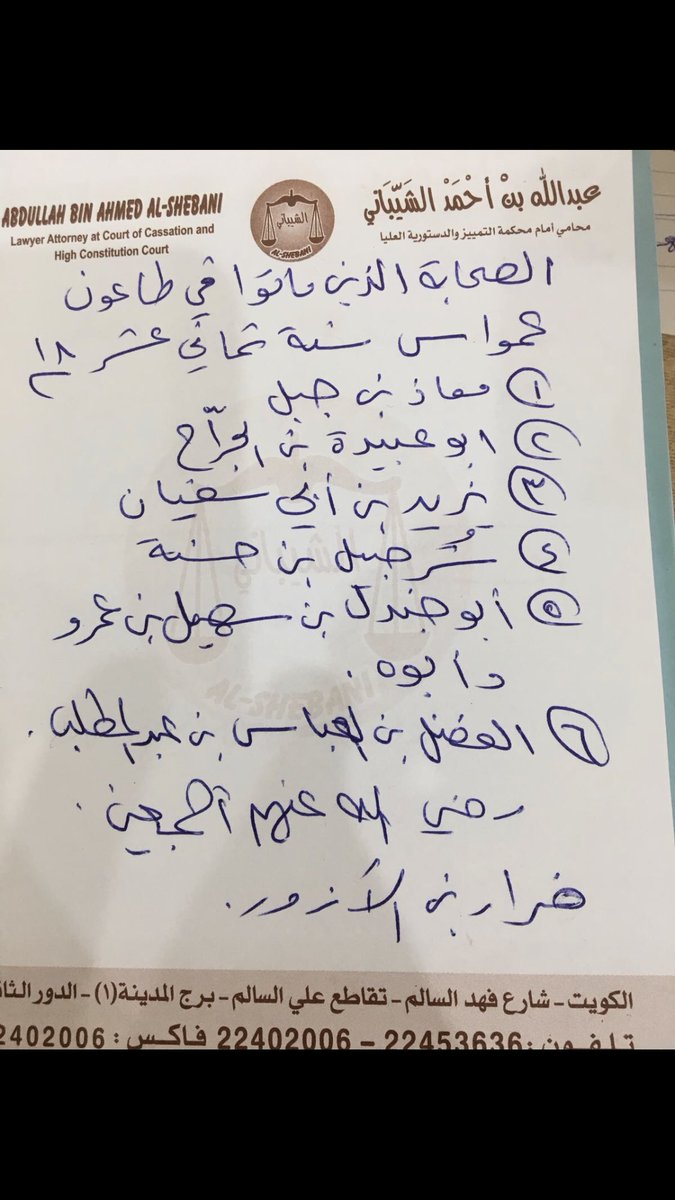 ABDULLAH BIN AHMED AL-SHEBANI
Lawyer Attorney at Court of Cassation and
High Constitution Court
الشيباني
AL-SHEBANI
عبدالله بنْ أحْمَدْ الشَيّبَاني
محامي أمام محكمة التمييز والدستورية العليا
الصحابة الذين ماتوا في طاعون
عمواس سنة ثماني عشر ١٨
١ معاذ بن جبل
٢ ابو عبيدة بن الجرّاح
٣ يزيد بن أبي سفيان
٤ شُرحبيل بن حسنة
٥ أبو جندل بن سهيل بن عمرو
وأبوه.
٦ الفضل بن العباس بن عبد المطلب.
رضي الله عنهم أجمعين.
ضرار بن الأزور.
الشيباني
AL-SHEBANI
الكويت - شارع فهد السالم - تقاطع علي السالم - برج المدينة (١) - الدور الثا
تلفون: 22453636 - 22402006 فاكس: 2402006